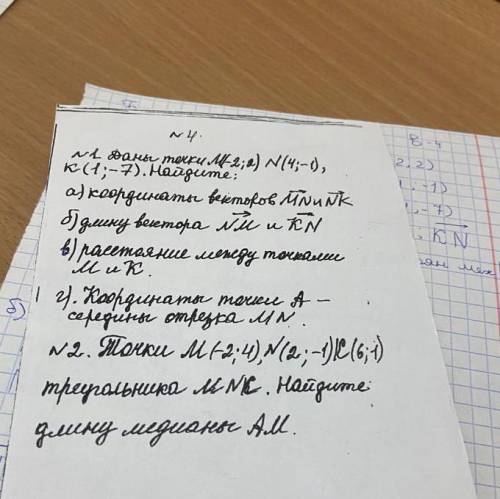 N4.
N1. Даны точки M(-2;2) N(4;-1),
K(1;-7). Найдите:
а) координаты векторов MN и NK
б) длину вектора NM и KN
в) расстояние между точками
M и K.
г). Координаты точки A –
середины отрезка MN.
N2. Точки M(-2;4), N(2;-1) K(6;1)
треугольника MNK. Найдите
длину медианы AM.
В-4
2,2)
, -1)
, -7)
KN
б)